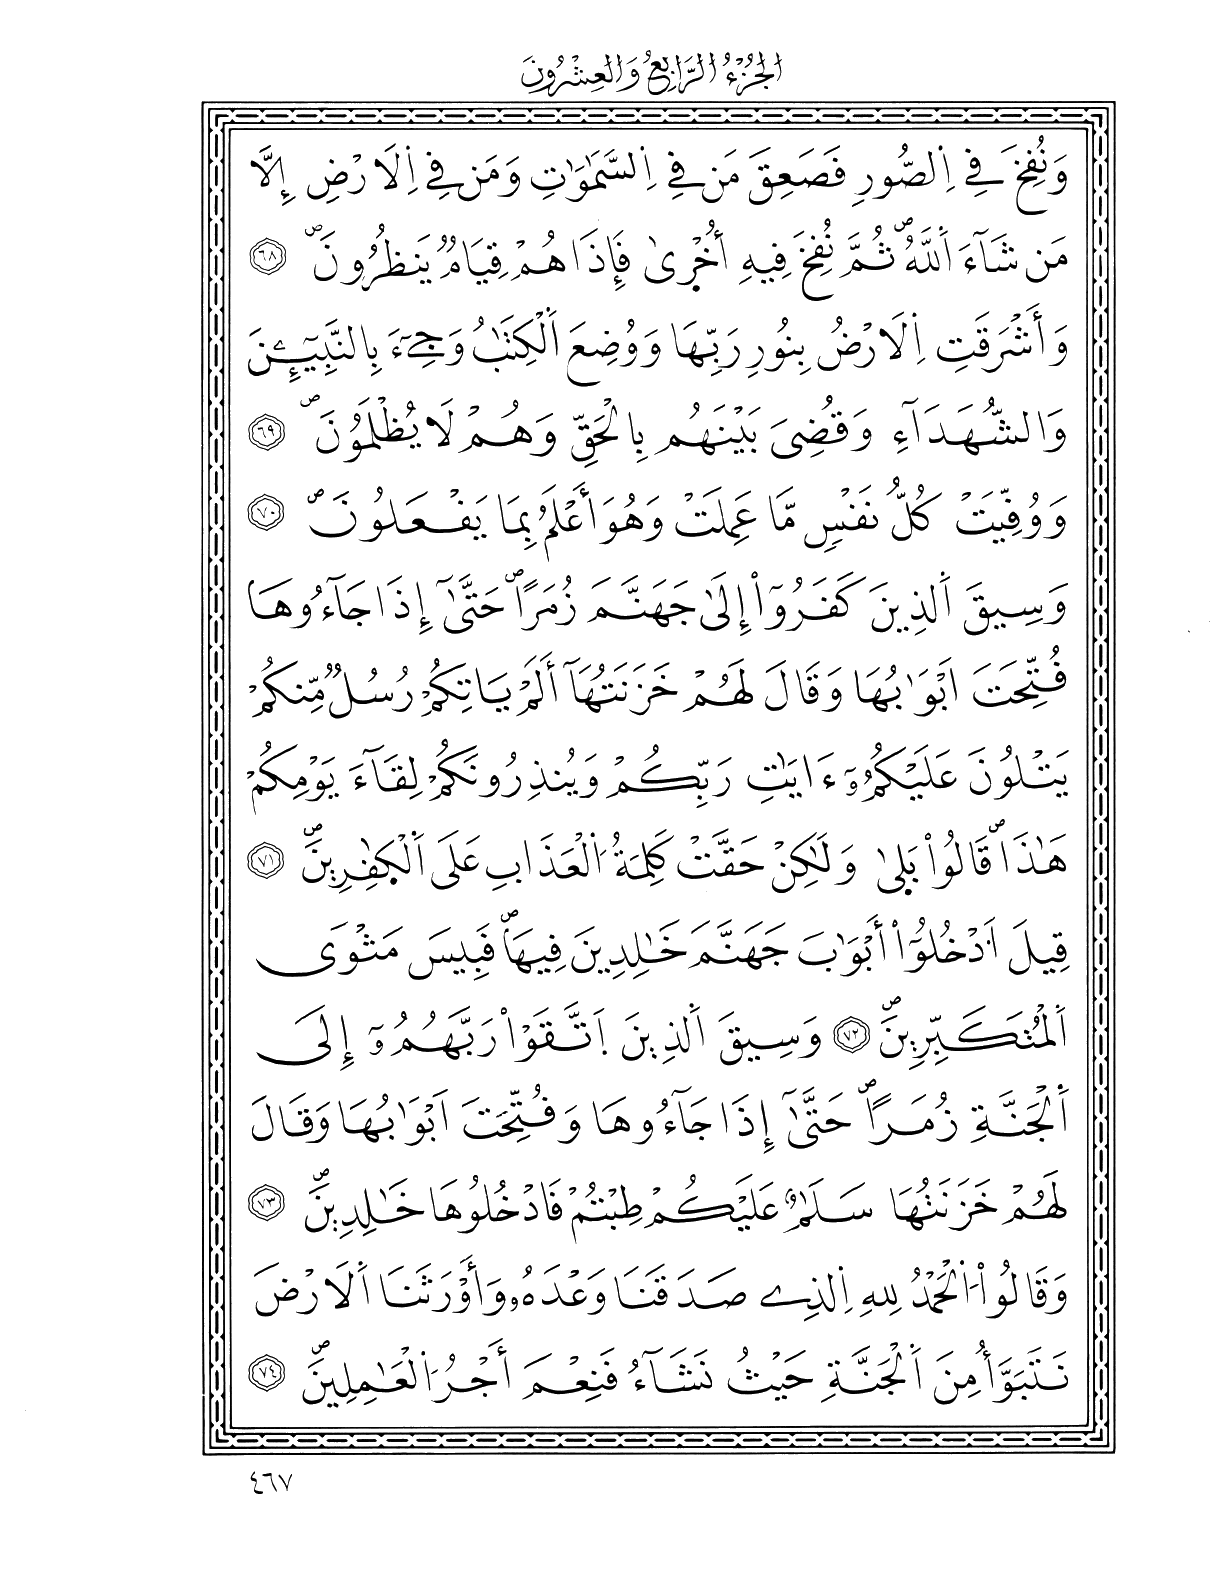 الجُزْءُ الرَّابِعُ وَالْعِشْرُونَ
وَنُفِخَ فِي اِ۬لصُّورِ فَصَعِقَ مَن فِي اِ۬لسَّمَٰوَٰتِ وَمَن فِي اِ۬لَارْضِ إِلَّا
مَن شَآءَ اَ۬للَّهُۖ ثُمَّ نُفِخَ فِيهِ أُخْرٜىٰ فَإِذَا هُمْ قِيَامٞ يَنظُرُونَۖ ٦٨
وَأَشْرَقَتِ اِ۬لَارْضُ بِنُورِ رَبِّهَا وَوُضِعَ اَ۬لْكِتَٰبُ وَجِےٓءَ بِالنَّبِيٓـِٕنَ
وَالشُّهَدَآءِ وَقُضِيَ بَيْنَهُم بِالْحَقِّ وَهُمْ لَا يُظْلَمُونَۖ ٦٩
وَوُفِّيَتْ كُلُّ نَفْسٖ مَّا عَمِلَتْ وَهُوَ أَعْلَمُ بِمَا يَفْعَلُونَۖ ٧٠
وَسِيقَ اَ۬لذِينَ كَفَرُوٓاْ إِلَىٰ جَهَنَّمَ زُمَراًۖ حَتَّىٰٓ إِذَا جَآءُوهَا
فُتِّحَتَ اَبْوَٰبُهَا وَقَالَ لَهُمْ خَزَنَتُهَآ أَلَمْ يَاتِكُمْ رُسُلٞ مِّنكُمْ
يَتْلُونَ عَلَيْكُمُۥٓ ءَايَٰتِ رَبِّكُمْ وَيُنذِرُونَكُمْ لِقَآءَ يَوْمِكُمْ
هَٰذَاۖ قَالُواْ بَلٜىٰ وَلَٰكِنْ حَقَّتْ كَلِمَةُ اُ۬لْعَذَابِ عَلَى اَ۬لْكٰٜفِرِينَۖ ٧١
قِيلَ اَ۟دْخُلُوٓاْ أَبْوَٰبَ جَهَنَّمَ خَٰلِدِينَ فِيهَاۖ فَبِيسَ مَثْوَى
اَ۬لْمُتَكَبِّرِينَۖ ٧٢ وَسِيقَ اَ۬لذِينَ اَ۪تَّقَوْاْ رَبَّهُمُۥٓ إِلَى
اَ۬لْجَنَّةِ زُمَراًۖ حَتَّىٰٓ إِذَا جَآءُوهَا وَفُتِّحَتَ اَبْوَٰبُهَا وَقَالَ
لَهُمْ خَزَنَتُهَا سَلَٰمٌ عَلَيْكُمْ طِبْتُمْ فَادْخُلُوهَا خَٰلِدِينَۖ ٧٣
وَقَالُواْ اُ۬لْحَمْدُ لِلهِ اِ۬لذِے صَدَقَنَا وَعْدَهُۥ وَأَوْرَثَنَا اَ۬لَارْضَ
نَتَبَوَّأُ مِنَ اَ۬لْجَنَّةِ حَيْثُ نَشَآءُ فَنِعْمَ أَجْرُ اُ۬لْعَٰمِلِينَۖ ٧٤
٤٦٧